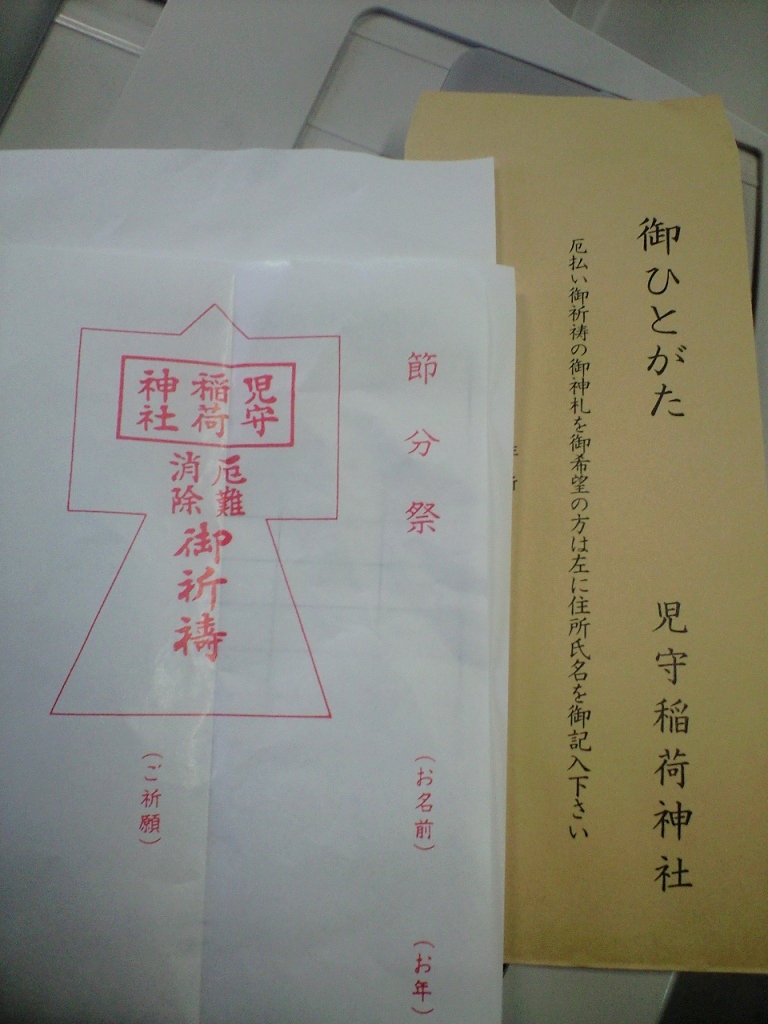 御ひとがた 児守稲荷神社
厄払い御祈祷の御神札を御希望の方は左に住所氏名を御記入下さい
節分祭
(お名前)
(お年)
児守
稲荷
神社
厄難
消除
御祈禱
(ご祈願)